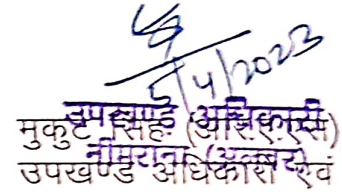 5/4/2023
उपखण्ड अधिकारी
मुकुट सिंह (आर.ए.एस)
नीमराना (अलवर)
उपखण्ड अधिकारी एवं